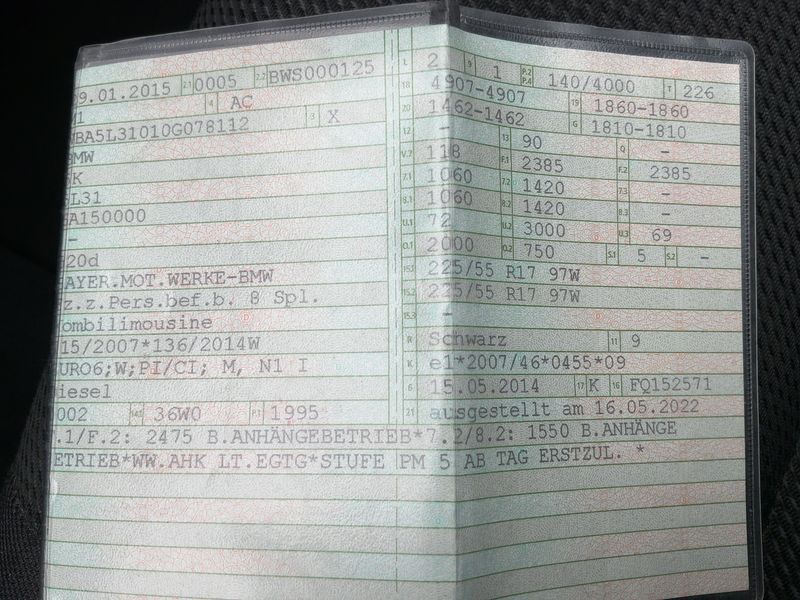 9.01.2015 2.1 0005 2.2 BWS000125
M1 4 AC
WBA5L31010G078112 3 X
BMW
K
L31
A150000
-
20d
AYER.MOT.WERKE-BMW
z.z.Pers.bef.b. 8 Spl.
ombilimousine
15/2007*136/2014W
URO6;W;PI/CI; M, N1 I
iesel
002 14.1 36W0 P.1 1995
.1/F.2: 2475 B.ANHÄNGEBETRIEB*7.2/8.2: 1550 B.ANHÄNGE
ETRIEB*WW.AHK LT.EGTG*STUFE PM 5 AB TAG ERSTZUL. *
L 2 9 1 P.2 P.4 140/4000 T 226
18 4907-4907 19 1860-1860
20 1462-1462 G 1810-1810
12 - 13 90 Q -
V.7 118 F.1 2385 F.2 2385
7.1 1060 7.2 1420 7.3 -
8.1 1060 8.2 1420 8.3 -
U.1 72 U.2 3000 U.3 69
O.1 2000 O.2 750 S.1 5 S.2 -
15.1 225/55 R17 97W
15.2 225/55 R17 97W
15.3 -
R Schwarz 11 9
K e1*2007/46*0455*09
6 15.05.2014 17 K 16 FQ152571
21 ausgestellt am 16.05.2022